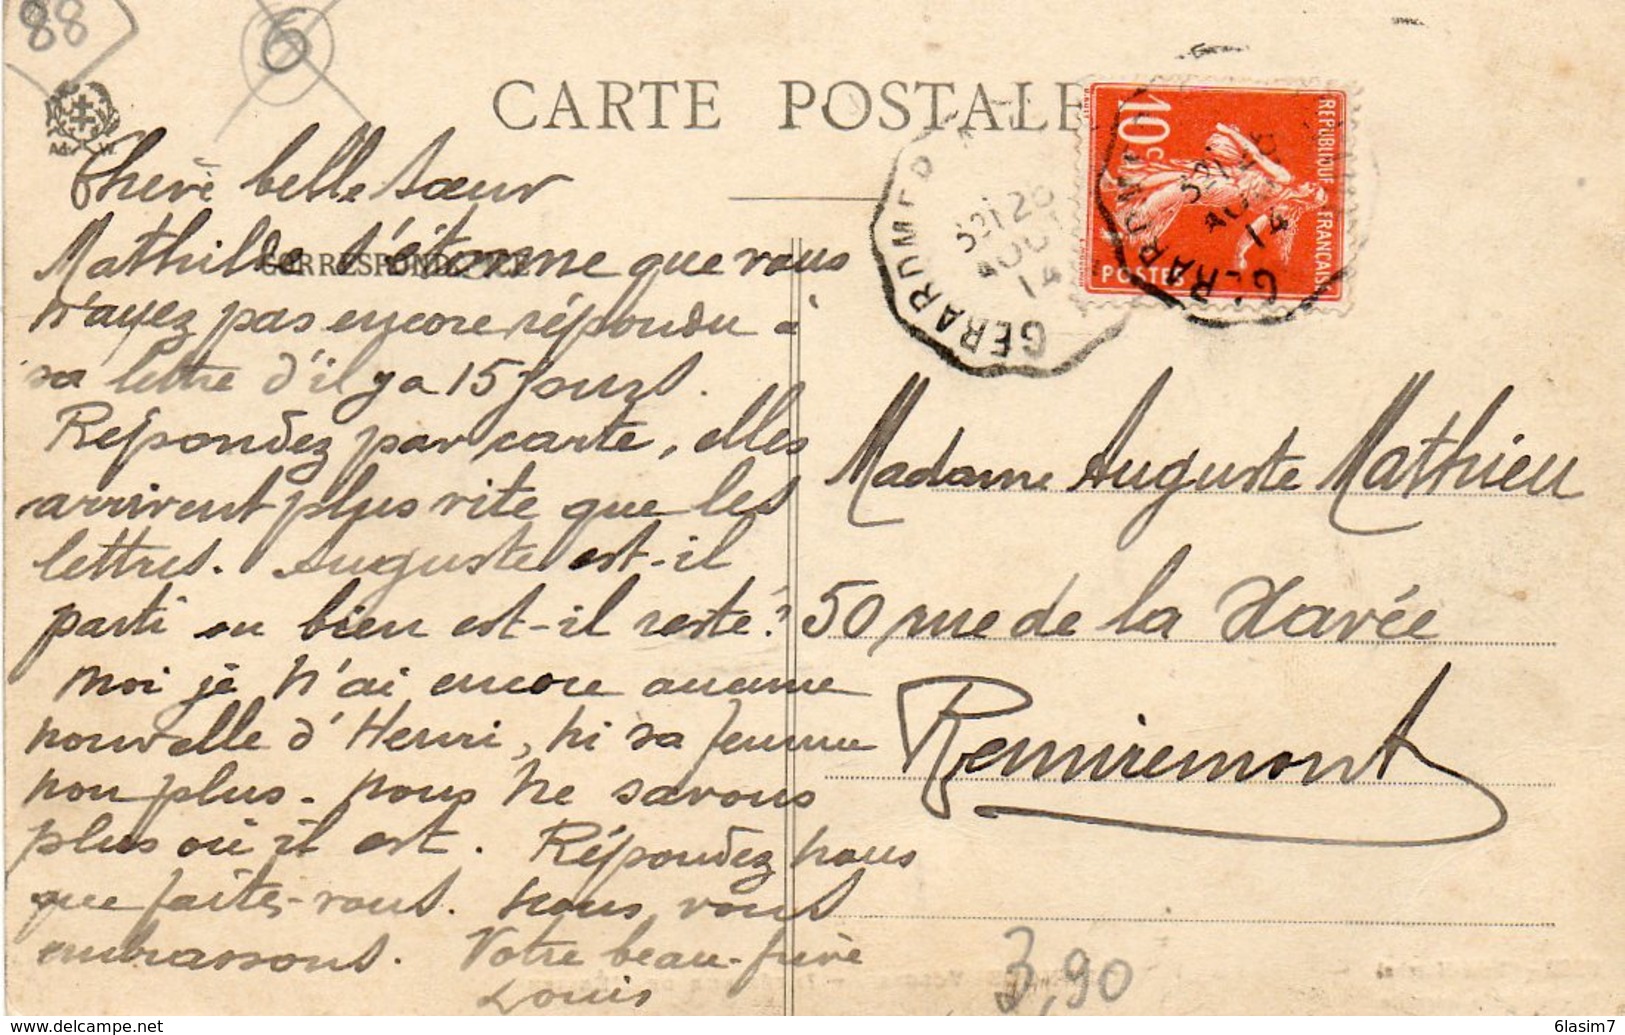 88
6
CARTE POSTALE
Ad W.
CORRESPONDANCE
Chère belle sœur
Mathilde s'étonne que vous
n'ayez pas encore répondu à
sa lettre d'il y a 15 jours.
Répondez par carte, elles
arrivent plus vite que les
lettres. Auguste est-il
parti ou bien est-il resté?
Moi je n'ai encore aucune
nouvelle d'Henri, ni sa femme
non plus. nous ne savons
plus où il est. Répondez nous
que faites-vous. Nous vous
embrassons. Votre beau-frère
Louis
REPUBLIQUE FRANÇAISE
10 c
POSTES
GERARDMER
AOUT
14
GERARDMER
14
Madame Auguste Mathieu
50 rue de la Xavée
Remiremont
3,90
www.delcampe.net
6lasim7